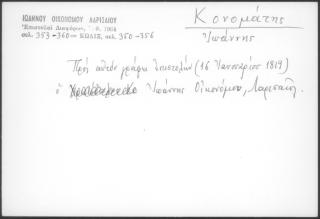 ΙΩΑΝΝΟΥ ΟΙΚΟΝΟΜΟΥ ΛΑΡΙΣΑΙΟΥ
Ἐπιστολαὶ Διαφόρων, 1964
σελ. 353-360= ΚΩΔΙΞ, σελ. 350-356
Κονομάτης
Ἰωάννης
Πρὸς αὐτὸν γράφει ἐπιστολὴν (16 Ἰανουαρίου 1819)
ὁ Ἰωάννης Οἰκονόμου, Λαρισαῖος.